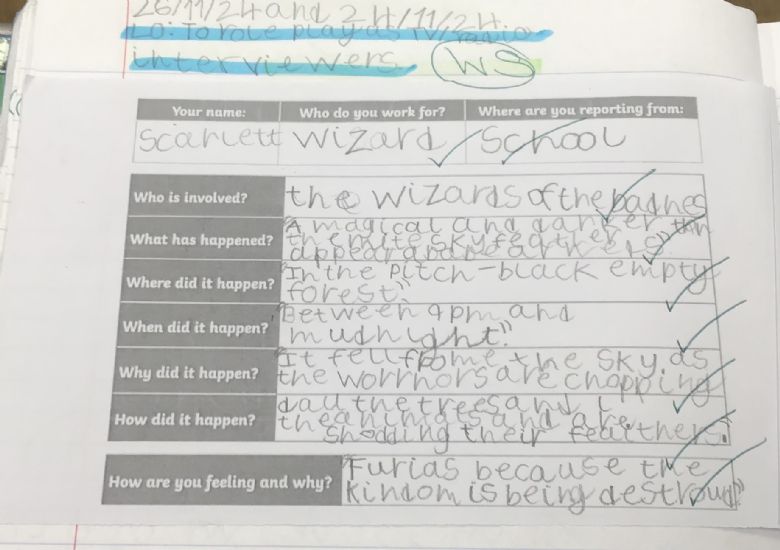 26/11/24 and 24/11/24.
LO: To role play as TV/radio
interviewers
WS
Your name: Who do you work for? Where are you reporting from:
Scarlett Wizard School
Who is involved? the wizards of the badnes
What has happened? "A magical and danger
the sky feather
appear
Where did it happen? "In the pitch-black empty
forest."
When did it happen? "Between 9pm and
mudnight."
Why did it happen? "It fell frome the sky. as
the worrhors are chopping
How did it happen? dau the trees and
the animals and are
shedding their feaither.
How are you feeling and why? "Furias because the
kindom is being destroud"